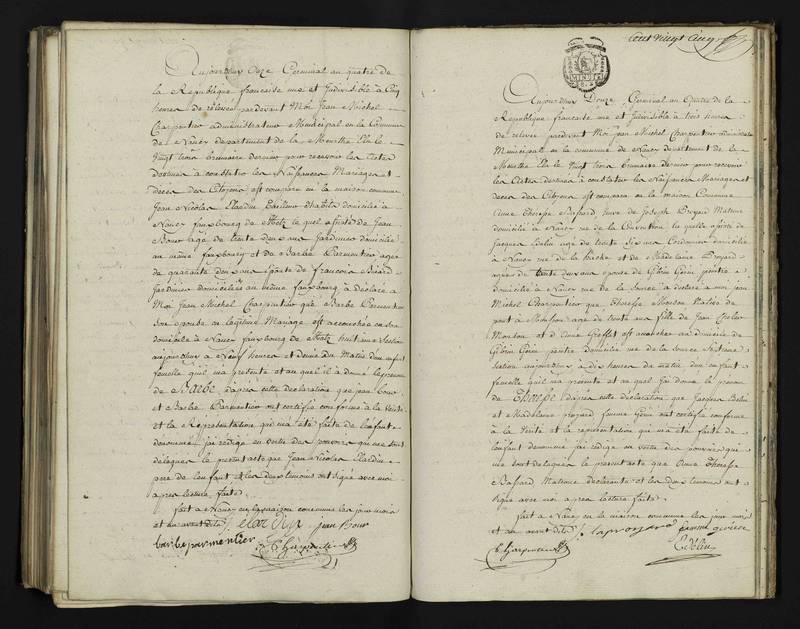 Aujourdhuy Onze Germinal an quatre de
la Republique francaise une et Indivisible à Cinq
heures de relevée pardevant Moi Jean Michel
Charpentier administrateur Municipal en la Commune
de Nancy departement de la Meurthe Elu le
Vingt trois brumaire dernier pour recevoir les Actes
destinés à constater les Naissances Mariages et
deces des Citoyens est comparu en la maison commune
Jean Nicolas Claudin domicilié à
Nancy fauxbourg de Metz le quel assisté de Jean
Bour agé de trente deux ans Jardinier domicilié
au même fauxbourg et de Barbe Parmentier agée
de quarante deux ans épouse de francois
Jardinier domiciliée au même fauxbourg, à déclaré à
Moi Jean Michel Charpentier que Barbe Parmentier
son epouse en legitime Mariage est accouchée en son
domicile à Nancy fauxbourg de Metz huitieme Section
aujourdhuy à Neuf heures et demie du Matin d'un enfant
femelle qu'il m'a presenté et au quel il à donné le prenom
de Barbe d'après cette déclaration que Jean Bour
et Barbe Parmentier ont certifié conforme à la Verité
et la Representation qui m'a été faite de l'enfant
denommé j'ai redigé en vertu des pouvoirs qui me sont
délegués le present acte que Jean Nicolas Claudin
pere de l'enfant et les deux temoins ont signé avec moi
après lecture faite
fait à Nancy en la maison commune les jour mois
et an avant dits jean Bour
barbe parmentier
Charpentier
Cent Vingt Cinq
MINUTE
Aujourdhuy Douze Germinal an Quatre de la
Republique francaise une et Indivisible à trois heures
de relevée pardevant Moi Jean Michel Charpentier administrateur
Municipal en la commune de Nancy departement de la
Meurthe Elu le Vingt trois brumaire dernier pour recevoir
les Actes destinés à constater les Naissances Mariages et
deces des Citoyens est comparu en la maison Commune
Anne Therese veuve de Joseph Matrone
domicilié à Nancy rue de la Convention la quelle assistée de
Jacques agé de trente Six ans Cordonnier domicilié
à Nancy rue de la et de Madelaine
agée de trente deux ans epouse de peintre
domicilié à Nancy rue de la Source à déclaré à moi Jean
Michel Charpentier que Therese Mordon Native de
pont à Mousson agée de trente ans fille de Jean
Mordon et d'Anne est accouchée au domicile de
peintre domicilié rue de la source Septieme
Section aujourdhuy à dix heures du matin d'un enfant
femelle qu'il m'a presenté et au quel J'ai donné le prenom
de d'après cette déclaration que Jacques
et Madelaine femme ont certifié conforme
à la Verité et la representation qui m'a été faite de
l'enfant denommé j'ai redigé en vertu des pouvoirs qui
me sont delegués le present acte que Anne Therese
Matrone déclarante et les deux temoins ont
signé avec moi après lecture faite
fait à Nancy en la maison commune les jour mois
et an avant dits femme
Charpentier